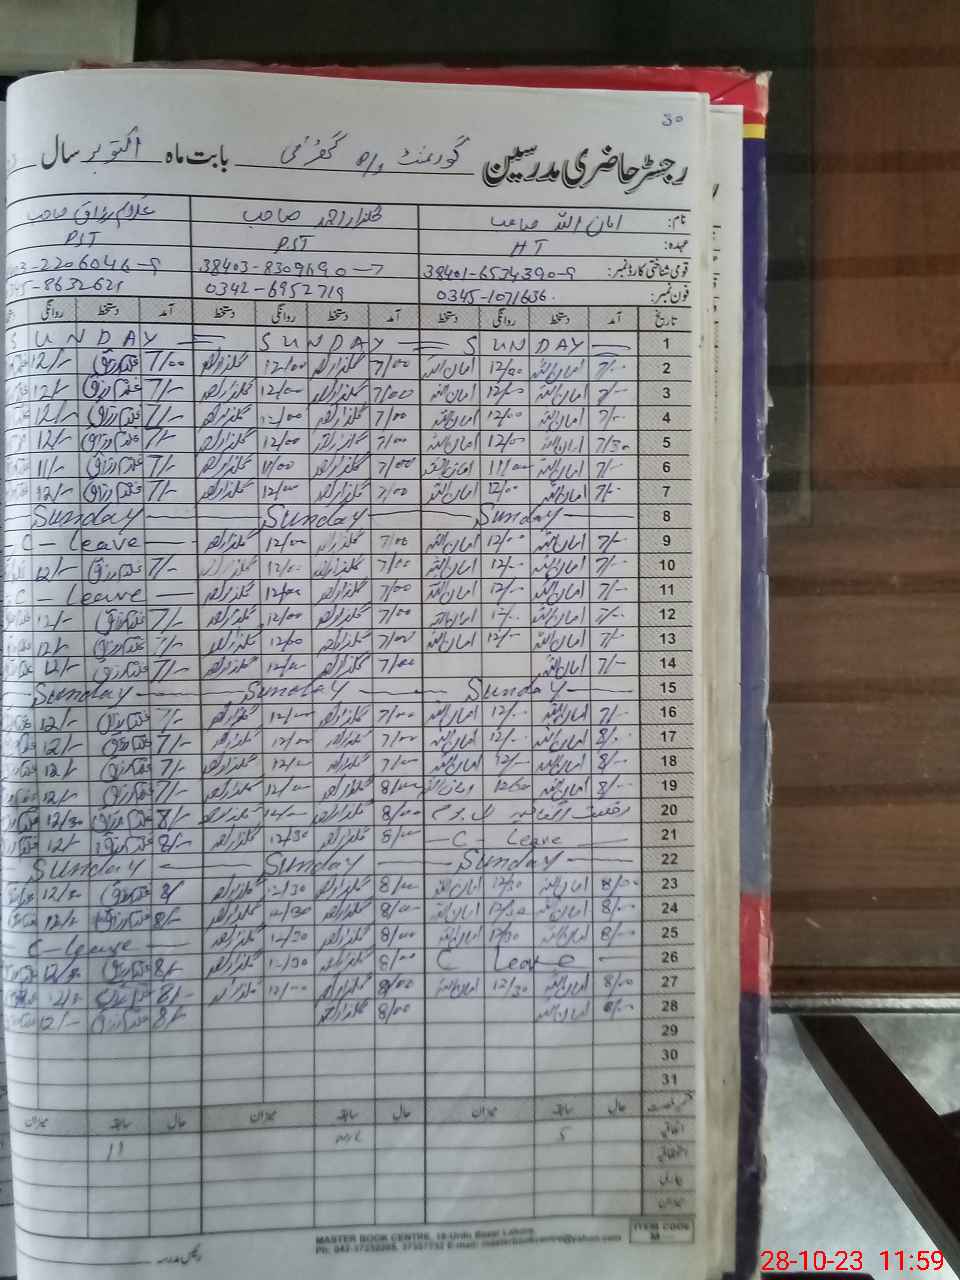 30
رجسٹر حاضری مدرسین گورنمنٹ بابت ماہ اکتوبر سال
نام: امان اللہ صاحب گلزار احمد صاحب غلام رزاق صاحب
عہدہ: HT PST PST
قومی شناختی کارڈ نمبر: 38401-6534390-9 38403-8309690-7 03-2206046-9
فون نمبر: 0345-1071636 0342-6952719 345-8632621
تاریخ آمد دستخط روانگی دستخط آمد دستخط روانگی دستخط آمد دستخط روانگی
1 SUNDAY SUNDAY SUNDAY
2 7/- امان اللہ 12/00 امان اللہ 7/00 گلزار احمد 12/00 گلزار احمد 7/00 غلام رزاق 12/-
3 7/- امان اللہ 12/00 امان اللہ 7/00 گلزار احمد 12/00 گلزار احمد 7/- غلام رزاق 12/-
4 7/- امان اللہ 12/00 امان اللہ 7/00 گلزار احمد 12/00 گلزار احمد 7/- غلام رزاق 12/-
5 7/30 امان اللہ 12/00 امان اللہ 7/00 گلزار احمد 12/00 گلزار احمد 7/- غلام رزاق 12/-
6 7/- امان اللہ 11/00 امان اللہ 7/00 گلزار احمد 11/00 گلزار احمد 7/- غلام رزاق 11/-
7 7/- امان اللہ 12/00 امان اللہ 7/00 گلزار احمد 12/00 گلزار احمد 7/- غلام رزاق 12/-
8 Sunday Sunday Sunday
9 7/- امان اللہ 12/00 امان اللہ 7/00 گلزار احمد 12/00 گلزار احمد C - leave
10 7/- امان اللہ 12/- امان اللہ 7/00 گلزار احمد 12/00 گلزار احمد 7/- غلام رزاق 12/-
11 7/- امان اللہ 12/- امان اللہ 7/00 گلزار احمد 12/00 گلزار احمد C - leave
12 7/- امان اللہ 12/- امان اللہ 7/00 گلزار احمد 12/00 گلزار احمد 7/- غلام رزاق 12/-
13 7/- امان اللہ 12/- امان اللہ 7/00 گلزار احمد 12/00 گلزار احمد 7/- غلام رزاق 12/-
14 7/- امان اللہ 7/00 گلزار احمد 12/00 گلزار احمد 7/- غلام رزاق 12/-
15 Sunday Sunday Sunday
16 7/- امان اللہ 12/- امان اللہ 7/00 گلزار احمد 12/00 گلزار احمد 7/- غلام رزاق 12/-
17 8/00 امان اللہ 12/- امان اللہ 7/00 گلزار احمد 12/00 گلزار احمد 7/- غلام رزاق 12/-
18 8/- امان اللہ 12/- امان اللہ 7/00 گلزار احمد 12/00 گلزار احمد 7/- غلام رزاق 12/-
19 8/- امان اللہ 12/30 امان اللہ 8/00 گلزار احمد 12/00 گلزار احمد 7/- غلام رزاق 12/-
20 رخصت 8/00 گلزار احمد گلزار احمد 8/- غلام رزاق 12/30
21 C - Leave 8/00 گلزار احمد 12/30 گلزار احمد 8/- غلام رزاق 12/-
22 Sunday Sunday Sunday
23 8/00 امان اللہ 12/30 امان اللہ 8/00 گلزار احمد 12/30 گلزار احمد 8/ غلام رزاق 12/30
24 8/00 امان اللہ 12/30 امان اللہ 8/00 گلزار احمد 12/30 گلزار احمد 8/- غلام رزاق
25 8/00 امان اللہ 12/30 امان اللہ 8/00 گلزار احمد 12/30 گلزار احمد C - leave
26 C Leave 8/00 گلزار احمد 12/30 گلزار احمد 8/- غلام رزاق 12/30
27 8/00 امان اللہ 12/30 امان اللہ 8/00 گلزار احمد 12/00 گلزار احمد 8/- غلام رزاق
28 8/00 امان اللہ 8/00 گلزار احمد 8/- غلام رزاق 12/-
29
30
31
حال سابقہ میزان حال سابقہ میزان حال سابقہ میزان
اتفاقیہ 5 11
رئیس مدرسہ
MASTER BOOK CENTRE, 18-Urdu Bazar Lahore
ITEM CODE
28-10-23 11:59